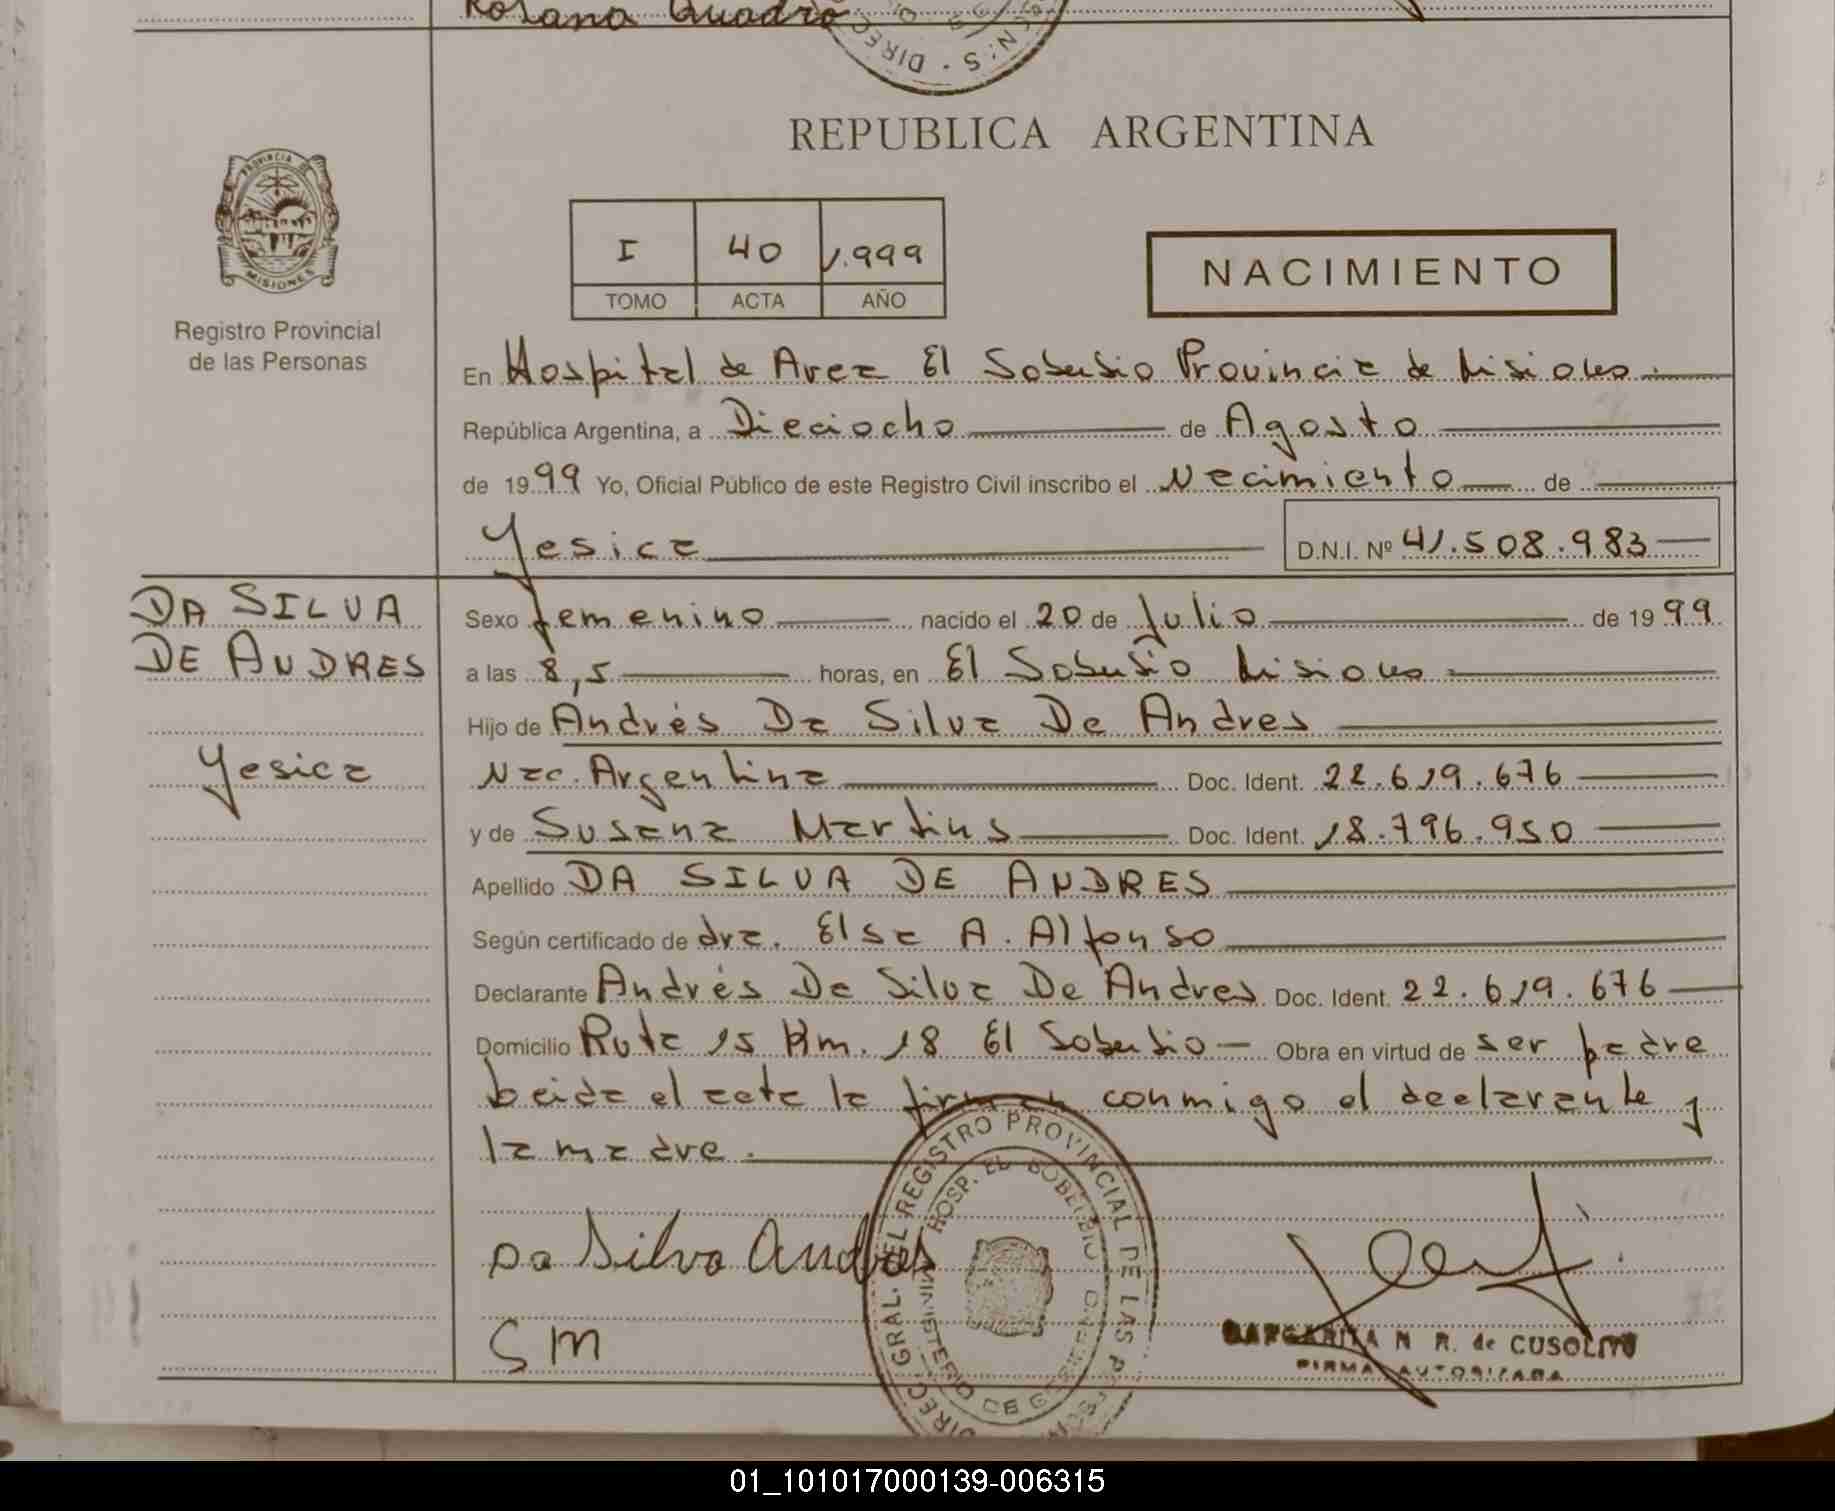 Rosana Quadro
DIREC
REPUBLICA ARGENTINA
PROVINCIA DE
MISIONES
Registro Provincial
de las Personas
I 40 1.999
TOMO ACTA AÑO
NACIMIENTO
En Hospital de Area El Soberbio Provincia de Misiones.
República Argentina, a Dieciocho de Agosto
de 1999 Yo, Oficial Público de este Registro Civil inscribo el Nacimiento de
Yesica D.N.I. Nº 41.508.983
DA SILVA
DE ANDRES
Yesica
Sexo femenino nacido el 20 de Julio de 1999
a las 8,5 horas, en El Soberbio Misiones
Hijo de Andrés Da Silva De Andres
Nac. Argentina Doc. Ident. 22.619.676
y de Susana Martins Doc. Ident. 18.796.950
Apellido DA SILVA DE ANDRES
Según certificado de dra. Elsa A. Alfonso
Declarante Andrés Da Silva De Andres Doc. Ident. 22.619.676
Domicilio Ruta 15 Km. 18 El Soberbio Obra en virtud de ser padre
Leida el acta la firman conmigo el declarante y
la madre.
Da Silva Andres
SM
DIREC. GRAL. DEL REGISTRO PROVINCIAL DE LAS PERSONAS
HOSP. EL SOBERBIO
MINISTERIO DE GOBIERNO
MARGARITA N R. de CUSOLITO
FIRMA AUTORIZADA
01_101017000139-006315